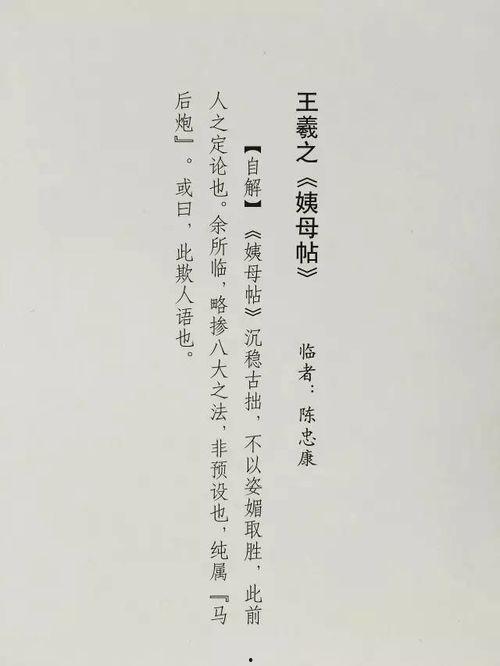 王羲之《姨母帖》
临者：陈忠康
【自解】《姨母帖》沉稳古拙，不以姿媚取胜，此前
人之定论也。余所临，略掺八大之法，非预设也，纯属『马
后炮』。或曰，此欺人语也。